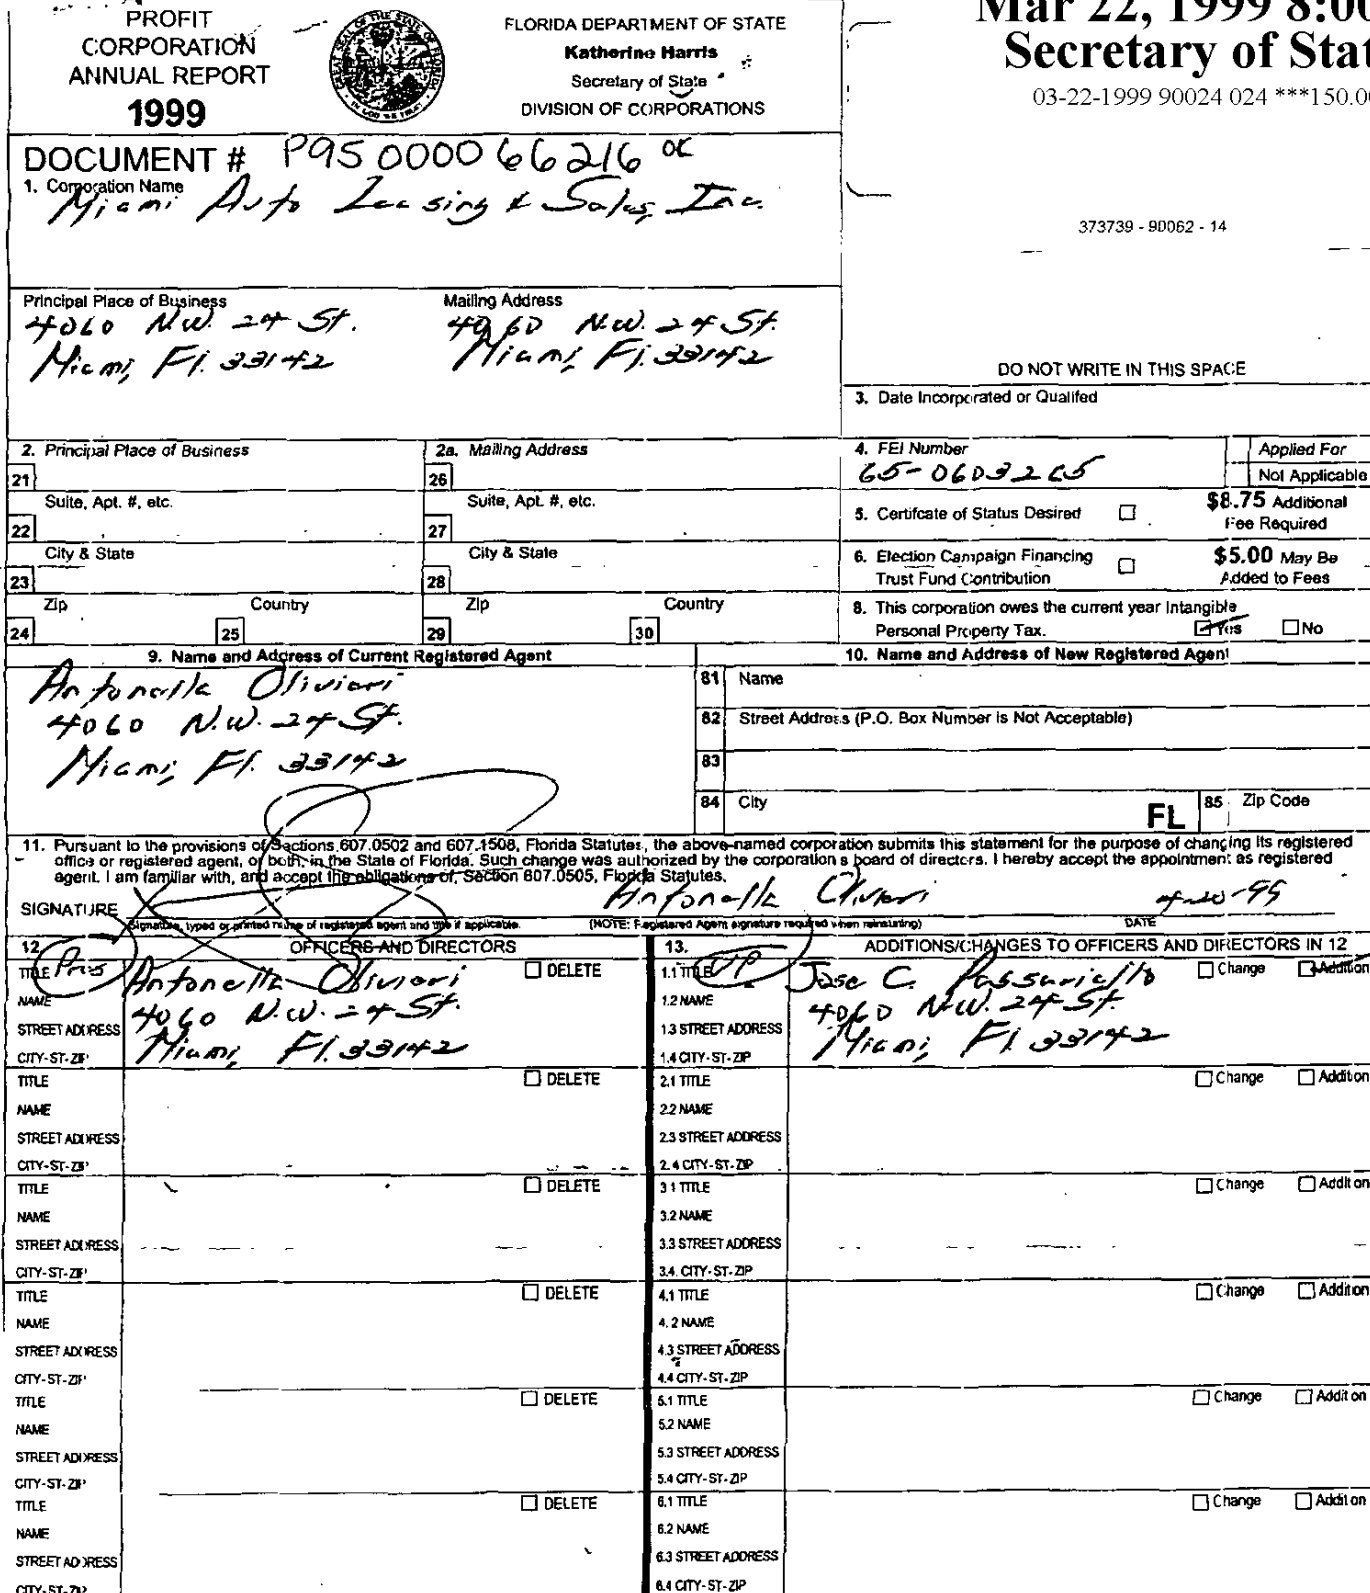 PROFIT
CORPORATION
ANNUAL REPORT
1999
FLORIDA DEPARTMENT OF STATE
Katherine Harris
Secretary of State
DIVISION OF CORPORATIONS
Mar 22, 1999 8:00
Secretary of Stat
03-22-1999 90024 024 ***150.00
373739 - 90062 - 14
DOCUMENT # P95000066216
1. Corporation Name
Miami Auto Leasing & Sales, Inc.
Principal Place of Business
4060 N.W. 24 St.
Miami, Fl. 33142
Mailing Address
4060 N.W. 24 St.
Miami, Fl. 33142
DO NOT WRITE IN THIS SPACE
3. Date Incorporated or Qualifed
2. Principal Place of Business
21
Suite, Apt. #, etc.
22
City & State
23
Zip Country
24 25
2a. Mailing Address
26
Suite, Apt. #, etc.
27
City & State
28
Zip Country
29 30
4. FEI Number
65-0603265
Applied For
Not Applicable
5. Certifcate of Status Desired
$8.75 Additional
Fee Required
6. Election Campaign Financing
Trust Fund Contribution
$5.00 May Be
Added to Fees
8. This corporation owes the current year Intangible
Personal Property Tax. Yes No
9. Name and Address of Current Registered Agent
Antonella Olivieri
4060 N.W. 24 St.
Miami, Fl. 33142
10. Name and Address of New Registered Agent
81 Name
82 Street Address (P.O. Box Number is Not Acceptable)
83
84 City FL 85 Zip Code
11. Pursuant to the provisions of Sections 607.0502 and 607.1508, Florida Statutes, the above-named corporation submits this statement for the purpose of changing its registered
office or registered agent, or both, in the State of Florida. Such change was authorized by the corporation s board of directors. I hereby accept the appointment as registered
agent. I am familiar with, and accept the obligations of, Section 607.0505, Florida Statutes.
SIGNATURE Antonella Olivieri
Signature, typed or printed name of registered agent and title if applicable. (NOTE: Registered Agent signature required when reinstating) DATE
12. OFFICERS AND DIRECTORS
TITLE Pres DELETE
NAME Antonella Olivieri
STREET ADDRESS 4060 N.W. 24 St.
CITY-ST-ZIP Miami, Fl. 33142
TITLE DELETE
NAME
STREET ADDRESS
CITY-ST-ZIP
TITLE DELETE
NAME
STREET ADDRESS
CITY-ST-ZIP
TITLE DELETE
NAME
STREET ADDRESS
CITY-ST-ZIP
TITLE DELETE
NAME
STREET ADDRESS
CITY-ST-ZIP
TITLE DELETE
NAME
STREET ADDRESS
CITY-ST-ZIP
13. ADDITIONS/CHANGES TO OFFICERS AND DIRECTORS IN 12
1.1 TITLE VP Change Addition
1.2 NAME Jose C. Passariello
1.3 STREET ADDRESS 4060 N.W. 24 St.
1.4 CITY-ST-ZIP Miami, Fl. 33142
2.1 TITLE Change Addition
2.2 NAME
2.3 STREET ADDRESS
2.4 CITY-ST-ZIP
3.1 TITLE Change Addition
3.2 NAME
3.3 STREET ADDRESS
3.4. CITY-ST-ZIP
4.1 TITLE Change Addition
4.2 NAME
4.3 STREET ADDRESS
4.4 CITY-ST-ZIP
5.1 TITLE Change Addition
5.2 NAME
5.3 STREET ADDRESS
5.4 CITY-ST-ZIP
6.1 TITLE Change Addition
6.2 NAME
6.3 STREET ADDRESS
6.4 CITY-ST-ZIP